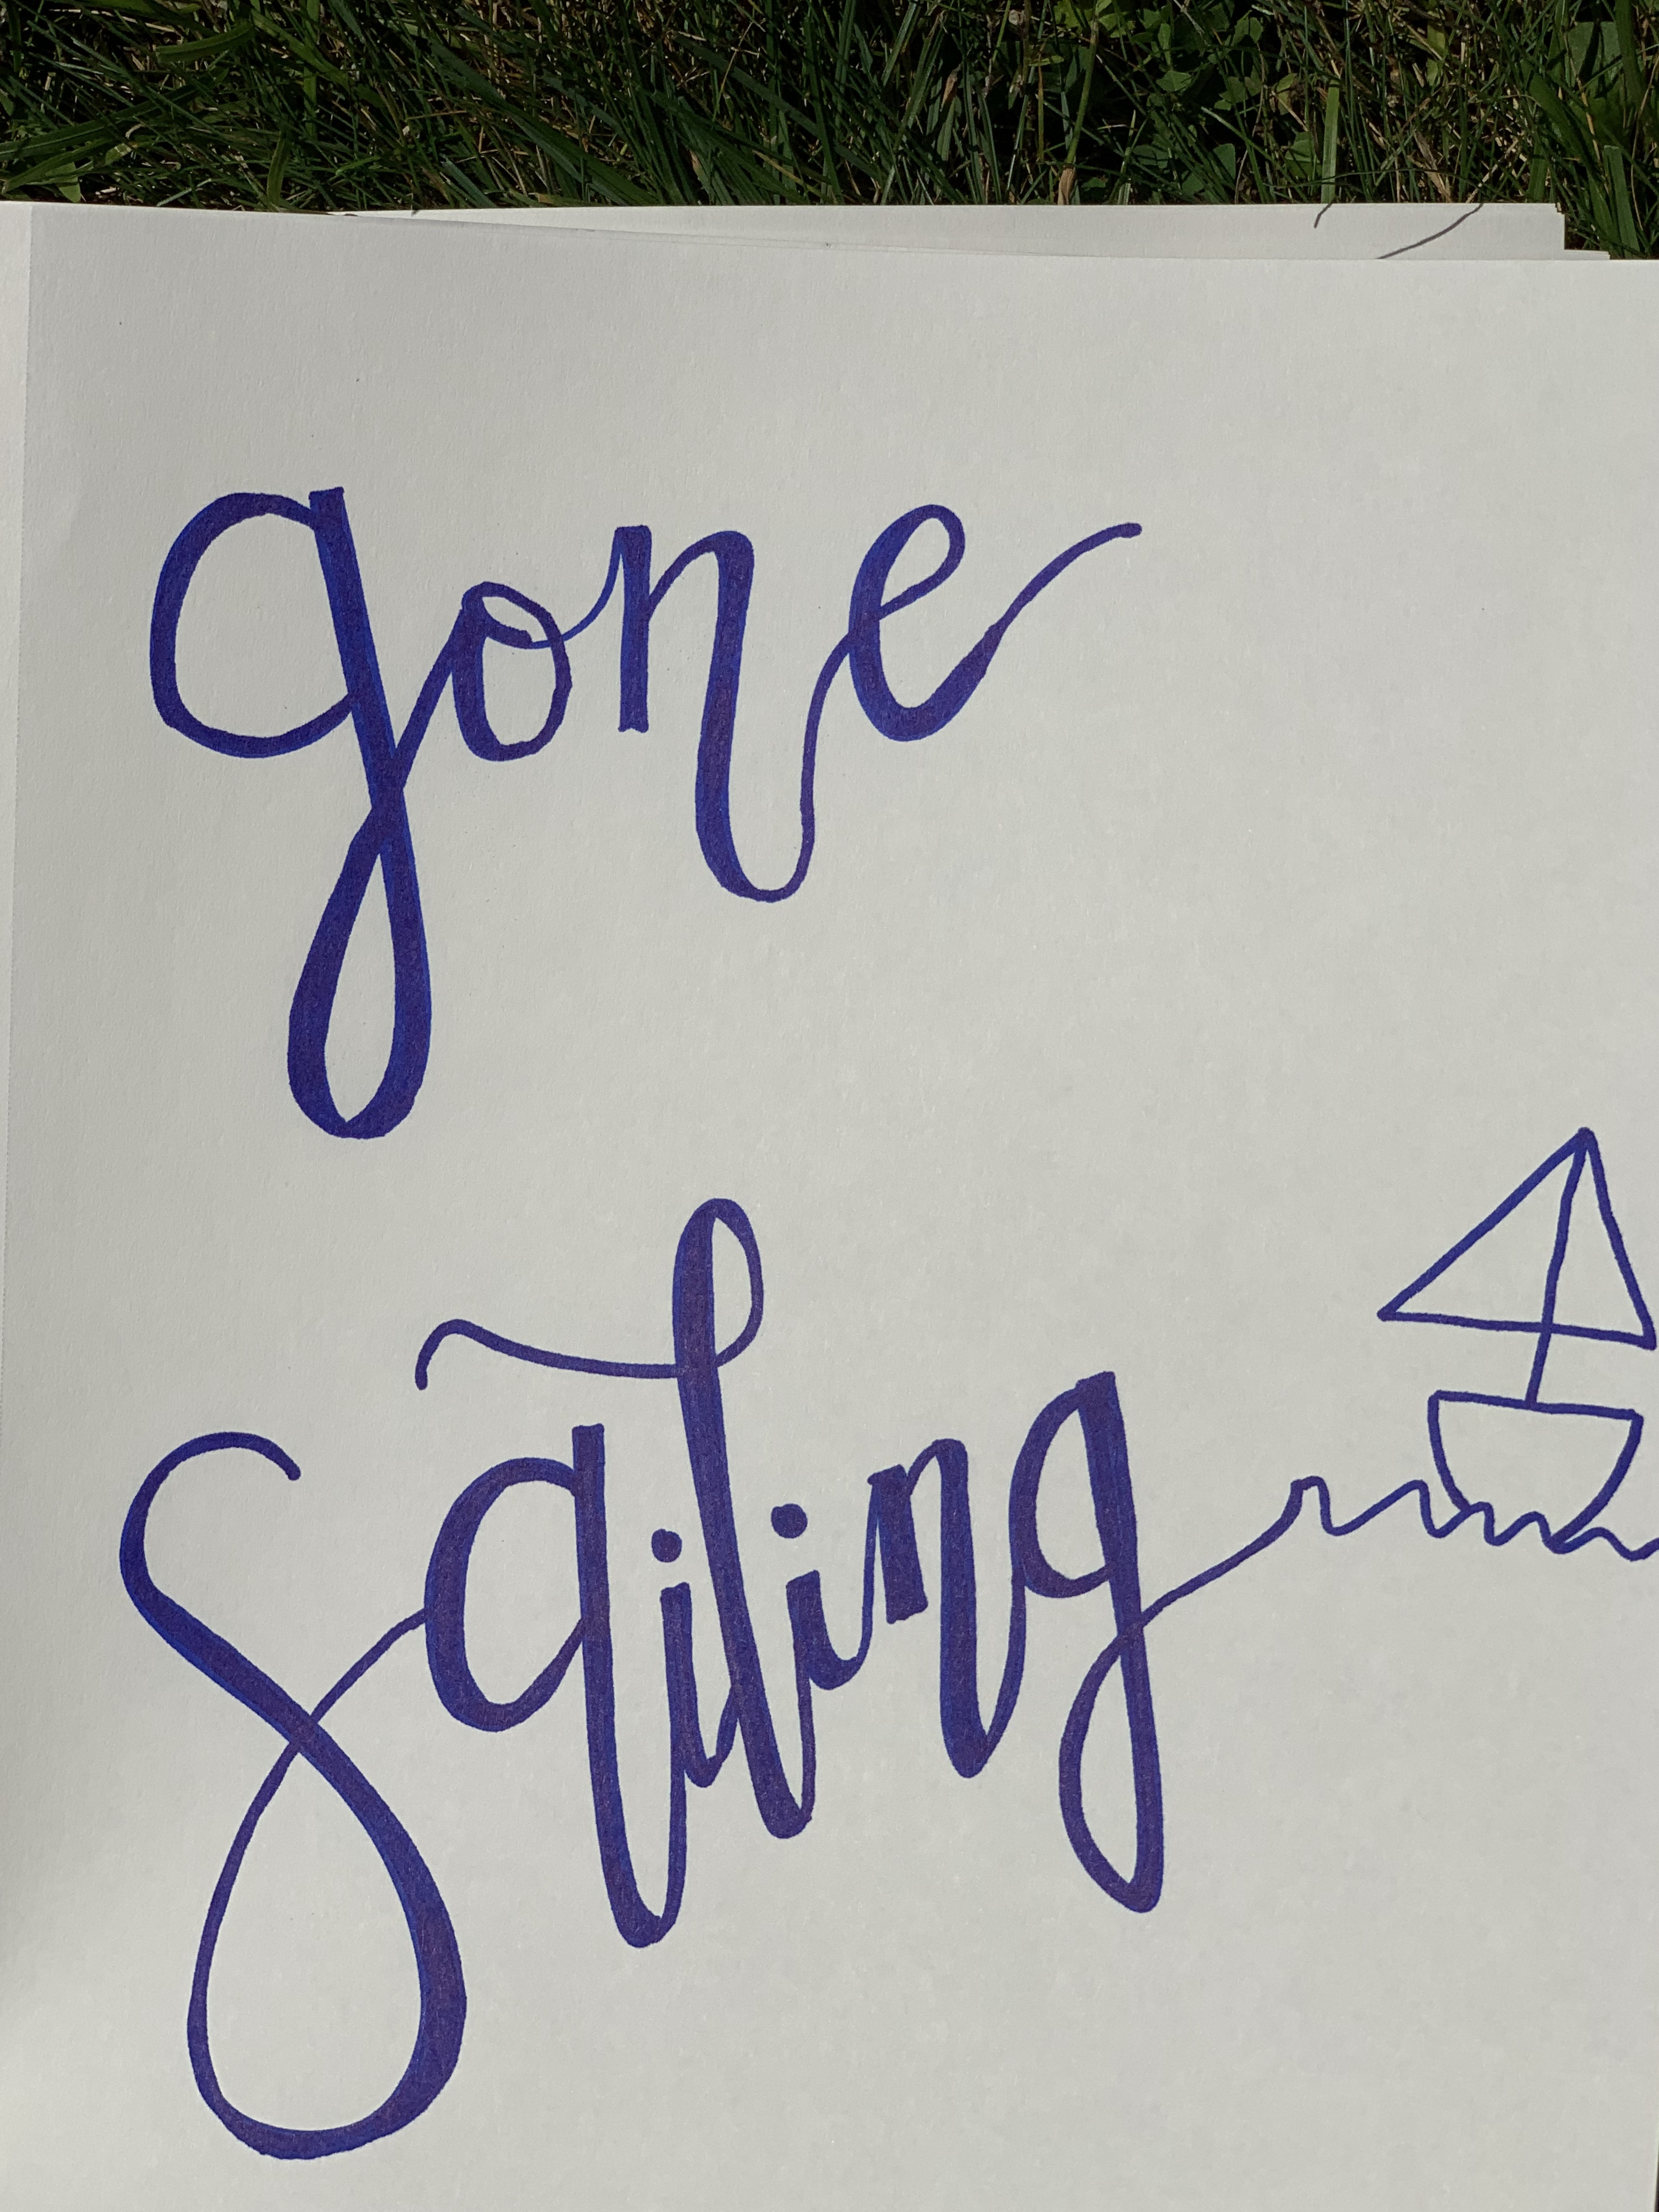 gone
sailing